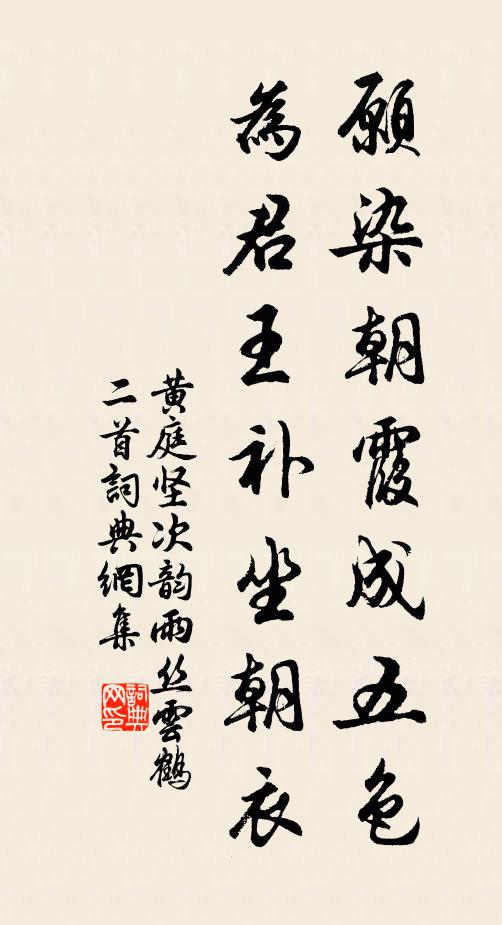 願染朝霞成五色
為君王补坐朝衣
黄庭坚次韵雨丝雲鶴
二首詞典網集
詞典网印